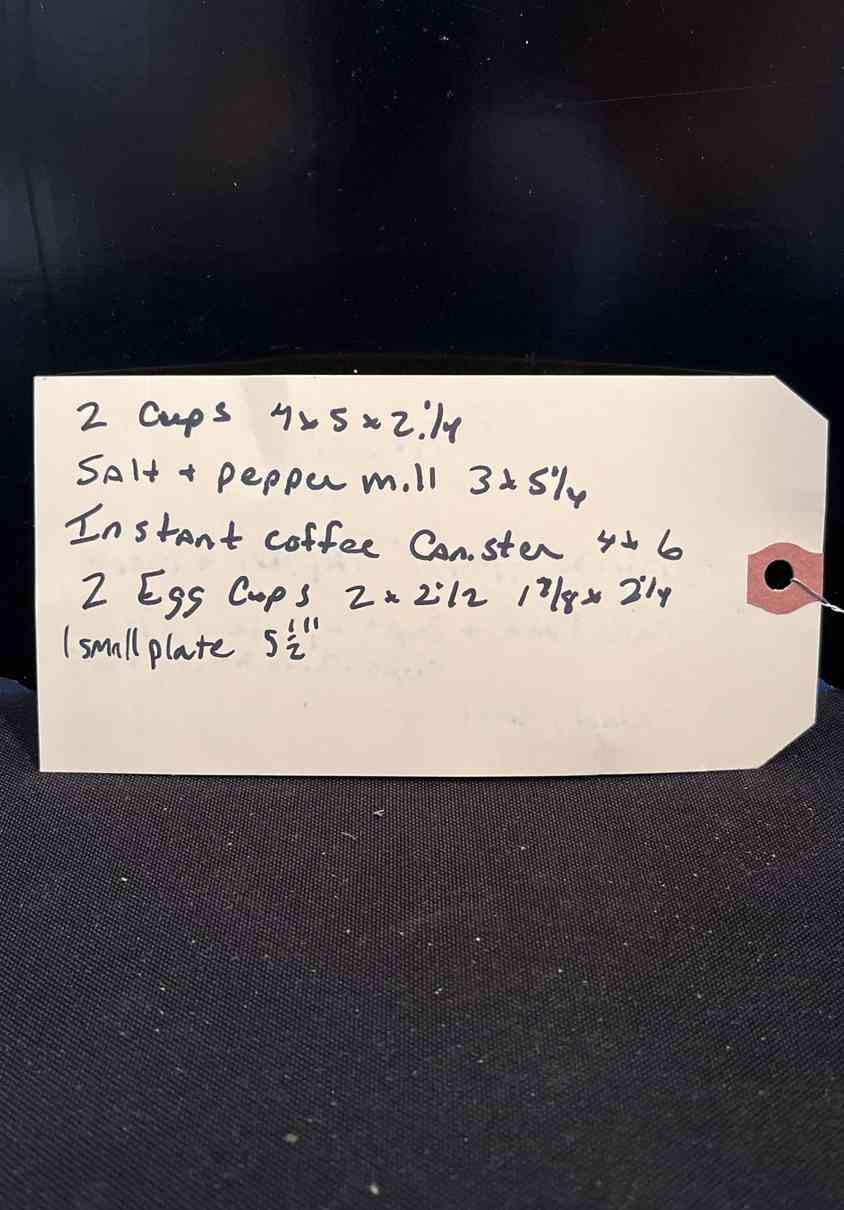 2 Cups 4x5x2 1/4
Salt + pepper mill 3x5 1/4
Instant coffee Canister 4x6
2 Egg Cups 2x2 1/2 1 7/8x2 1/4
1 small plate 5 1/2"